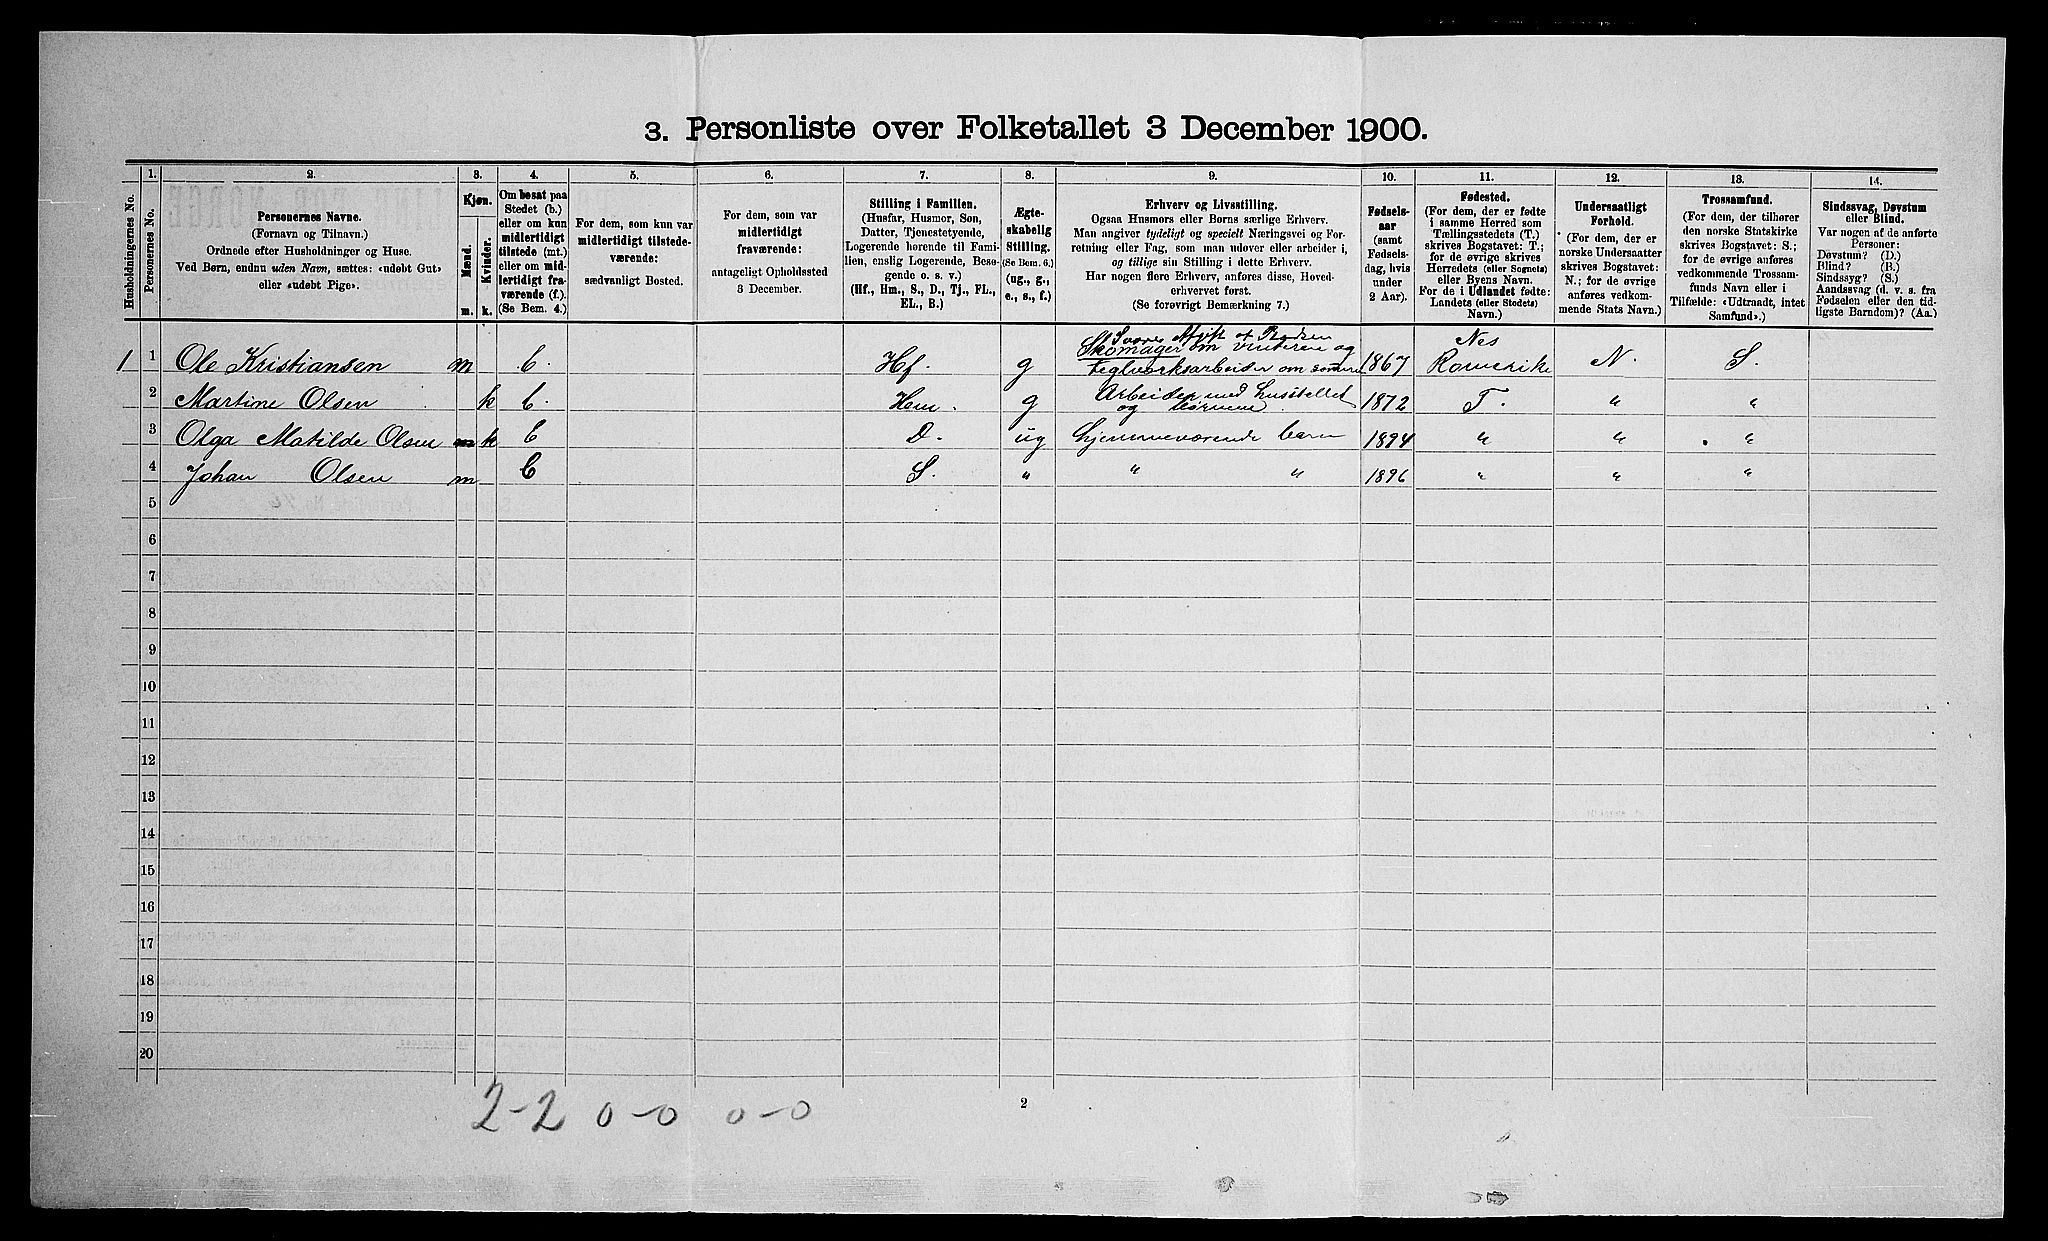 3. Personliste over Folketallet 3 December 1900.
Husholdningernes No.
1.
Personernes No.
2.
Personernes Navne.
(Fornavn og Tilnavn.)
Ordnede efter Husholdninger og Huse.
Ved Børn, endnu uden Navn, sættes: «udøbt Gut»
eller «udøbt Pige».
3.
Kjøn.
Mænd.
Kvinder.
m. k.
4.
Om bosat paa
Stedet (b.)
eller om kun
midlertidigt
tilstede (mt.)
eller om mid-
lertidigt fra-
værende (f.).
(Se Bem. 4.)
5.
For dem, som kun var
midlertidigt tilstede-
værende:
sædvanligt Bosted.
6.
For dem, som var
midlertidigt
fraværende:
antageligt Opholdssted
3 December.
7.
Stilling i Familien.
(Husfar, Husmor, Søn,
Datter, Tjenestetyende,
Logerende hørende til Fami-
lien, enslig Logerende, Besø-
gende o. s. v.)
(Hf., Hm., S., D., Tj., FL.,
EL., B.)
8.
Ægte-
skabelig
Stilling.
(Se Bem. 6.)
(ug., g.,
e., s., f.)
9.
Erhverv og Livsstilling.
Ogsaa Husmors eller Børns særlige Erhverv.
Man angiver tydeligt og specielt Næringsvei og For-
retning eller Fag, som man udøver eller arbeider i,
og tillige sin Stilling i dette Erhverv.
Har nogen flere Erhverv, anføres disse, Hoved-
erhvervet først.
(Se forøvrigt Bemærkning 7.)
10.
Fødsels-
aar
(samt
Fødsels-
dag, hvis
under
2 Aar).
11.
Fødested.
(For dem, der er fødte
i samme Herred som
Tællingsstedets (T.)
skrives Bogstavet: T.;
for de øvrige skrives
Herredets (eller Sognets)
eller Byens Navn.
For de i Udlandet fødte:
Landets (eller Stedets)
Navn.)
12.
Undersaatligt
Forhold.
(For dem, der er
norske Undersaatter
skrives Bogstavet:
N.; for de øvrige
anføres vedkom-
mende Stats Navn.)
13.
Trossamfund.
(For dem, der tilhører
den norske Statskirke
skrives Bogstavet: S.;
for de øvrige anføres
vedkommende Trossam-
funds Navn eller i
Tilfælde: «Udtraadt, intet
Samfund».)
14.
Sindssvag, Døvstum
eller Blind.
Var nogen af de anførte
Personer:
Døvstum? (D.)
Blind? (B.)
Sindssyg? (S.)
Aandssvag (d. v. s. fra
Fødselen eller den tid-
ligste Barndom)? (Aa.)
Nes
Skomager om vinteren og
1 1 Ole Kristiansen m b. Hf. g teglverksarbeider om somren 1867 Romerike N. S.
Arbeider med husstellet
2 Martine Olsen k b. Hm. g og børnene. 1872 T. " "
3 Olga Matilde Olsen m k b D. ug hjemmeværende barn 1894 " " "
4 Johan Olsen m b S. " " " 1896 " " "
5
6
7
8
9
10
11
12
13
14
15
16
17
18
19
20
2-2 0-0 0-0
2